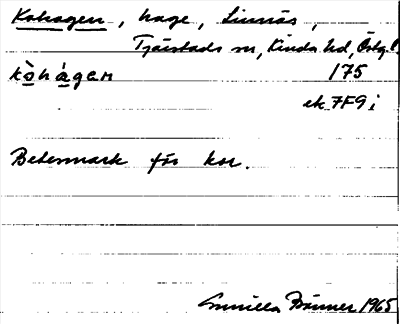 Kohagen, hage, Linnäs,
Tjärstads sn, Kinda hd, Östg.
kòhàgen 175
ek 7F9i
Betesmark för kor.
Gunilla Brönner 1965